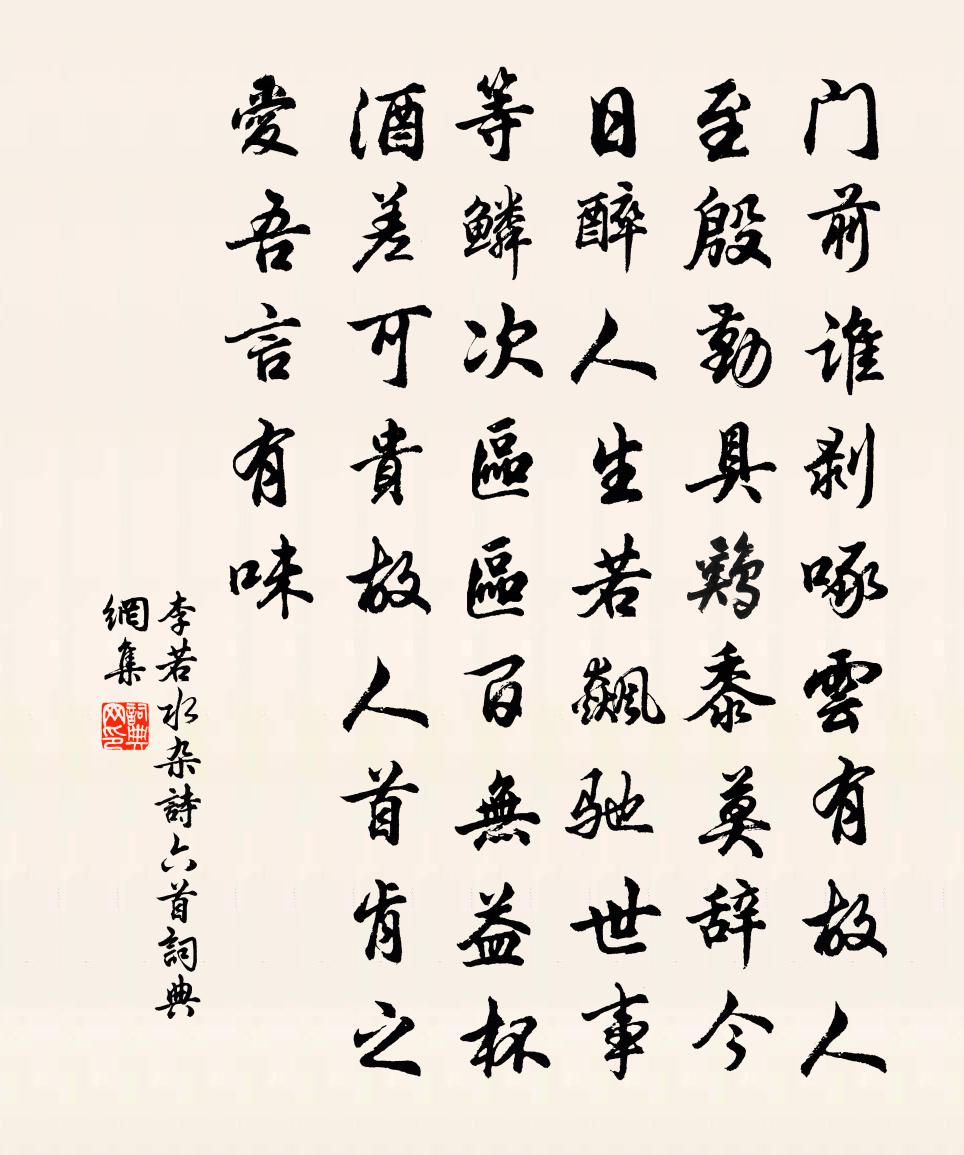 门前谁剥啄雲有故人
至殷勤具鷄黍莫辞今
日醉人生若飆驰世事
等鱗次區區百無益杯
酒差可貴故人首肯之
愛吾言有味
李若水杂詩六首詞典
網集
詞典
网印